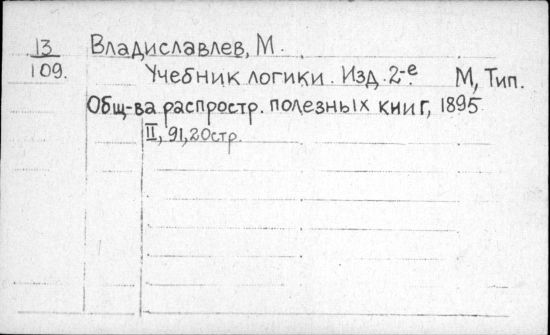 13 Владиславлев, М.
109. Учебник логики. Изд. 2-е. М, Тип.
Общ-ва распростр. полезных книг, 1895
II, 91, 20стр.